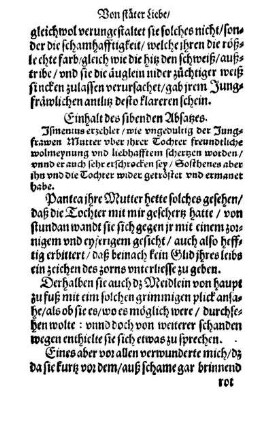 Von stäter Liebe/
gleichwol verungestaltet sie solches nicht/ son-
der die schamhafftigkeit/ welche jhren die röß-
lechte farb/ gleich wie die hitz den schweiß/ auß-
tribe/ vnd sie die äuglein nider züchtiger weiß
sincken zulassen verursachet/ gab jrem Jung-
fräwlichen antlitz desto klareren schein.
Einhalt des sibenden Absatzes.
Ismenius erzehlet/ wie vngedultig der Jung-
frawen Mutter vber jhrer Tochter freundliche
wolmeynung vnd liebhafftem schertzen worden/
vnnd er auch sehr erschrocken sey/ Sosthenes aber
jhn vnd die Tochter wider getröstet vnd ermanet
habe.
Pantea jhre Mutter hette solches gesehen/
daß die Tochter mit mir geschertzt hatte/ von
stundan wandt sie sich gegen jr mit einem zor-
nigem vnd eyferigem gesicht/ auch also heff-
tig erbittert/ daß beinach kein Glid jhres leibs
ein zeichen des zorns vnterliesse zu geben.
Derhalben sie auch dz Meidlein von haupt
zu fuß mit eim solchen grimmigen plick ansa-
he/ als ob sie es/ wo es möglich were/ durchse-
hen wolte: vnnd doch von weiterer schanden
wegen enthielte sie sich etwas zu sprechen.
Eines aber vor allen verwunderte mich/ dz
da sie kurtz vor dem/ auß schame gar brinnend
rot